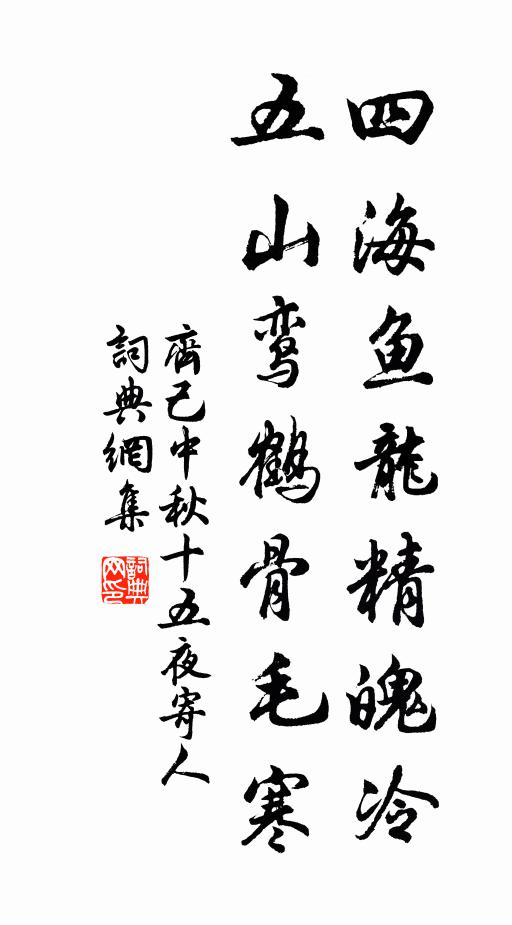 四海鱼龍精魄冷
五山鸾鹤骨毛寒
齊己中秋十五夜寄人
詞典網集
詞典网印